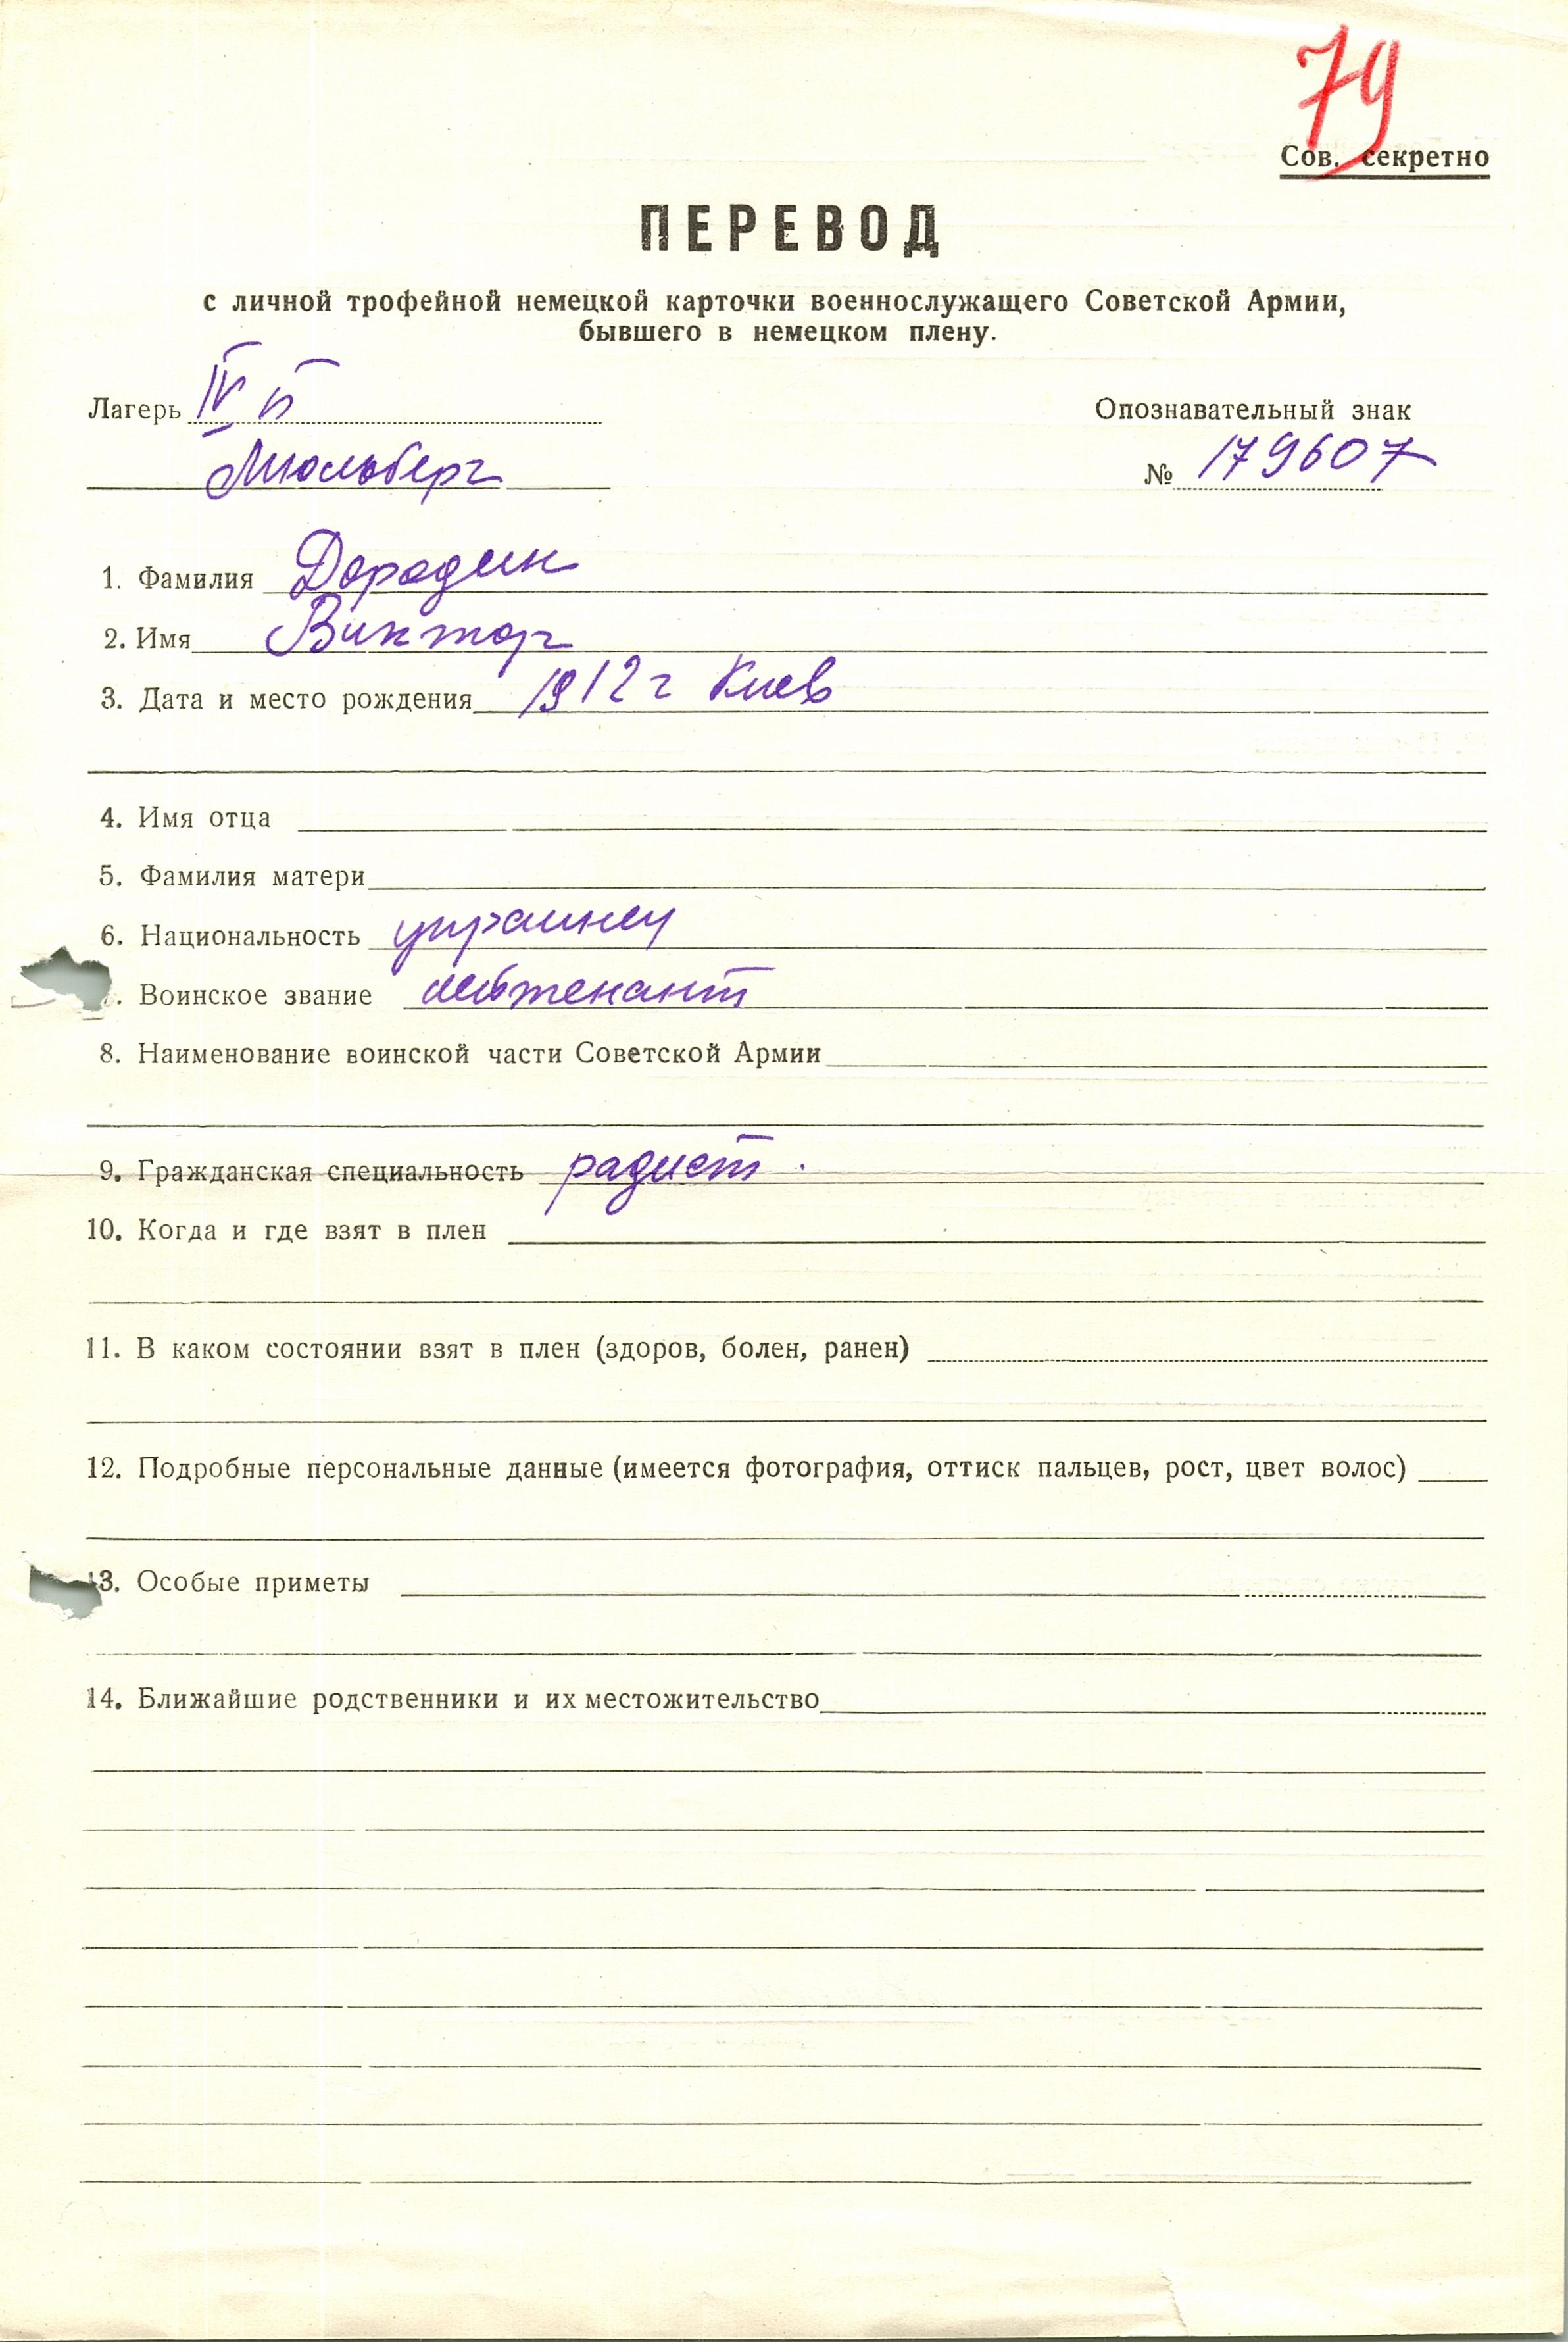 79
Сов. секретно
ПЕРЕВОД
с личной трофейной немецкой карточки военнослужащего Советской Армии,
бывшего в немецком плену.
Лагерь IV Б
Мюльберг
Опознавательный знак
№ 179607
1. Фамилия Дородин
2. Имя Виктор
3. Дата и место рождения 1912 г Киев
4. Имя отца
5. Фамилия матери
6. Национальность украинец
. Воинское звание лейтенант
8. Наименование воинской части Советской Армии
9. Гражданская специальность радист.
10. Когда и где взят в плен
11. В каком состоянии взят в плен (здоров, болен, ранен)
12. Подробные персональные данные (имеется фотография, оттиск пальцев, рост, цвет волос)
13. Особые приметы
14. Ближайшие родственники и их местожительство